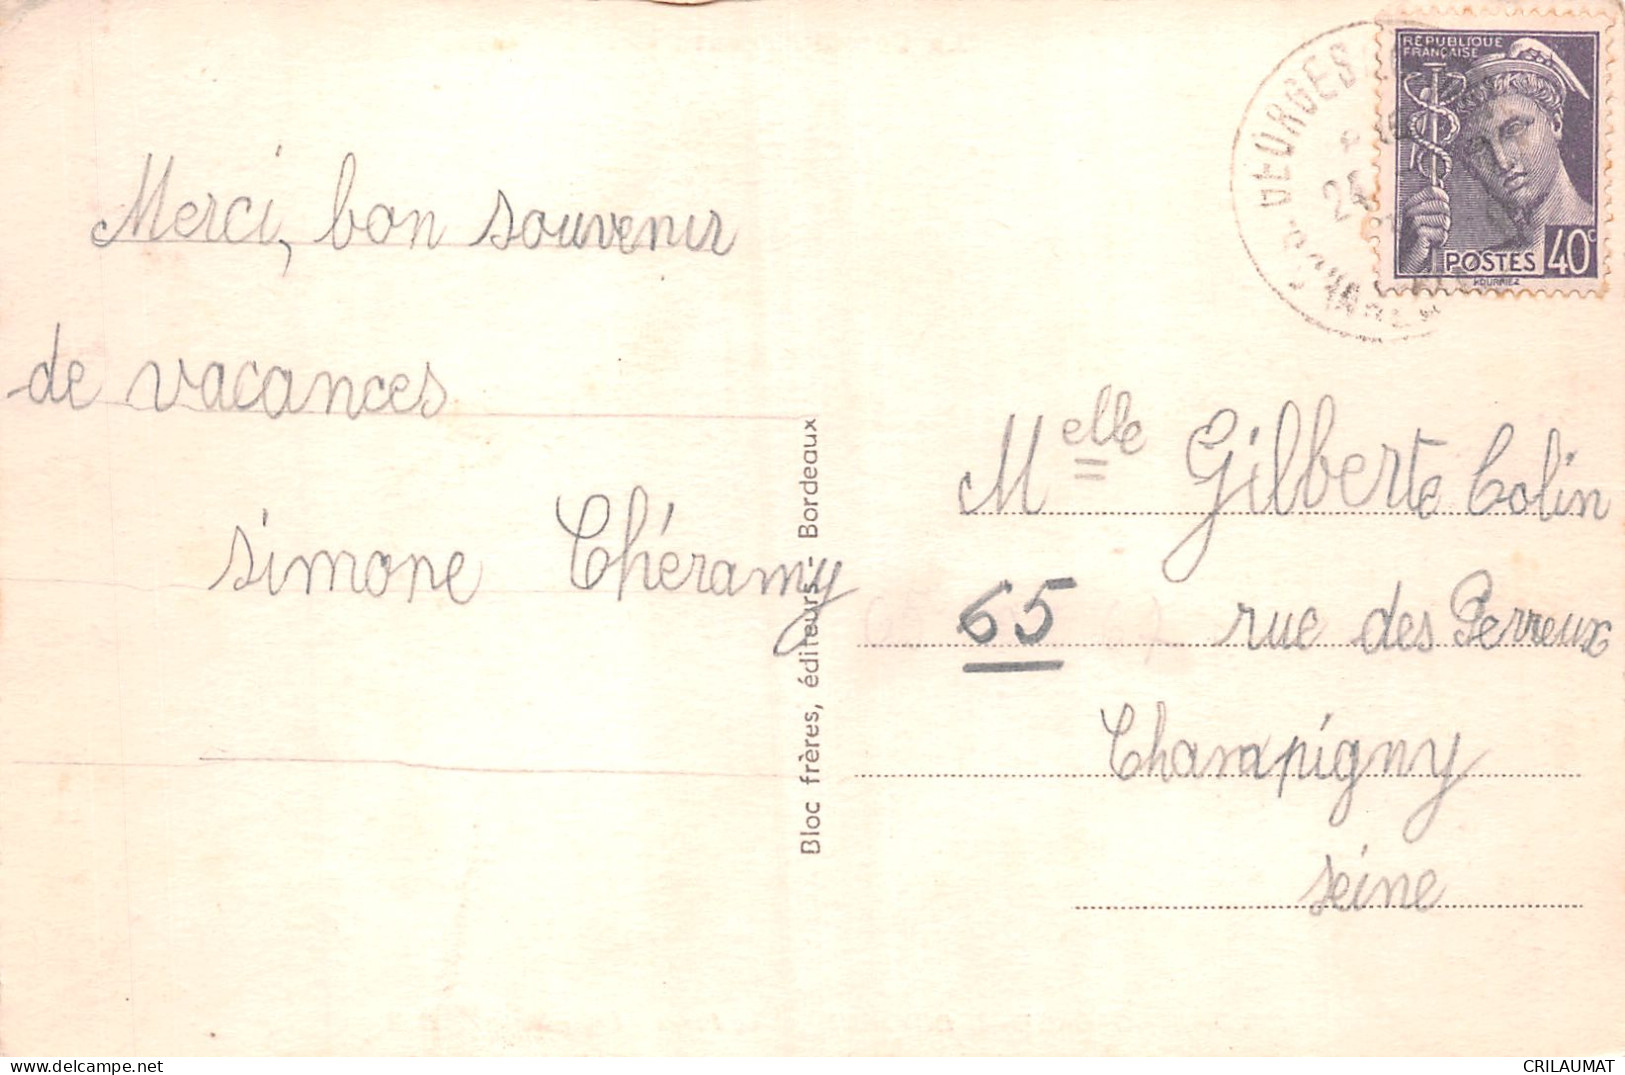 Merci, bon souvenir
de vacances
Simone Chéramy
Bloc frères, éditeurs - Bordeaux
RÉPUBLIQUE
FRANÇAISE
POSTES 40c
HOURRIEZ
GEORGES
24
Melle Gilberte Colin
65 rue des Perreux
Champigny
Seine
CRILAUMAT